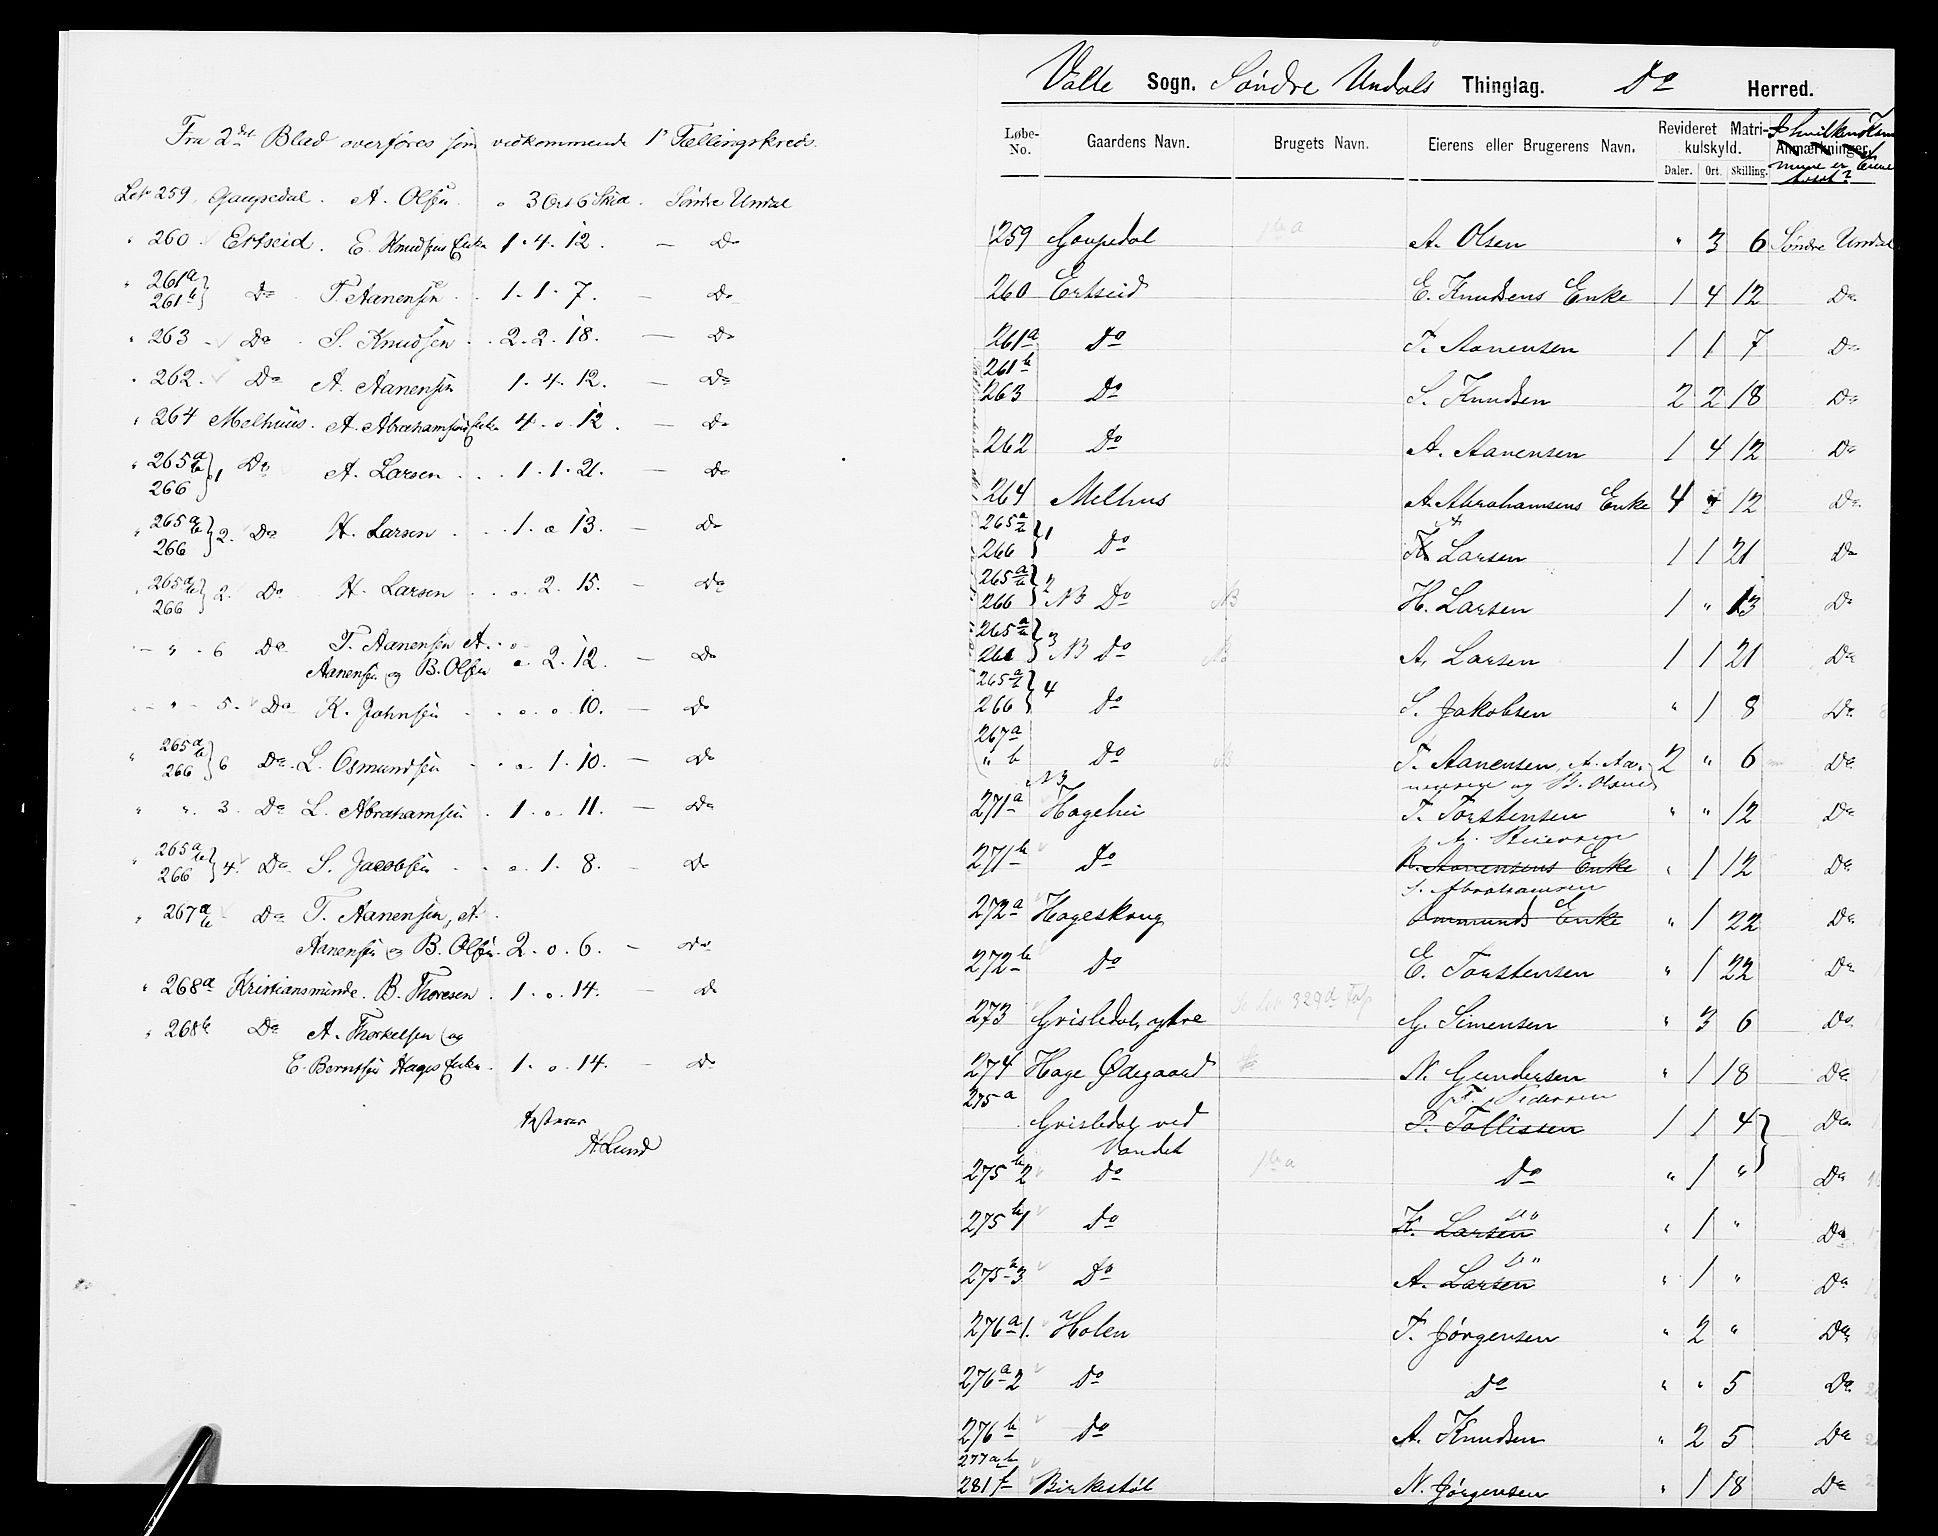 Fra 2det Blad overføres som vedkommende 1e Tællingskreds.
Lb. 259. Gaupedal. A. Olsen. o 3 Ort 6 Skill. Søndre Undal
" 260 Ertseid. E. Knudsens Enke 1. 4. 12. — Do
" 261a 261b } Do T. Aanensen . . 1. 1. 7. — Do
" 263 Do . S. Knudsen . . 2. 2. 18. — Do
" 262. Do A. Aanensen 1. 4. 12. — Do
" 264 Melhuus. A. Abrahamsens Enke 4. o 12. — Do
" 265a b 266 } 1 Do A. Larsen . . . 1. 1. 21. — Do
" 265a b 266 } 2. Do H. Larsen . . . 1. o 13. — Do
" 265a b 266 } 2. Do H. Larsen . . o. 2. 15. — Do
— " - 6 Do T. Aanensen A.
Aanensen og B. Olsen o. 2. 12. — Do
— " - 5. Do K. Johnsen . . o. o. 10. — Do
" 265a b 266 } 6 Do. L. Osmundsen . . o. 1. 10. — Do
" ". 3. Do L. Abrahamsen . 1. o. 11. — Do
" 265a b 266 } 4. Do S. Jacobsen . . o. 1. 8. — Do
" 267a b Do T. Aanensen, A.
Aanensen og B. Olsen. 2. o. 6. — Do
" 268a Kristiansminde. B. Thoresen . 1. o. 14. — Do
" 268b Do A. Thorkelsen og
E. Berntsen Hages Enke. 1. o. 14. — Do
A Lund
Valle Sogn. Søndre Undals Thinglag. Do Herred.
Løbe-No. Gaardens Navn. Brugets Navn. Eierens eller Brugerens Navn. Revideret Matrikulskyld. Anmærkninger.
Daler. Ort. Skilling.
I hvilken Kommune er Eieren bosat?
259 Gaupedal A. Olsen " 3 6 Søndre Undal
260 Ertseid E. Knudsens Enke 1 4 12 Do
261a 261b Do T. Aanensen 1 1 7 Do
263 Do S. Knudsen 2 2 18 Do
262 Do A. Aanensen 1 4 12 Do
264 Melhus A. Abrahamsens Enke 4 " 12 Do
265a b 266 } 1 Do A Larsen 1 1 21 Do
265a b 266 } 2 NB Do NB H. Larsen 1 " 13 Do
265a b 266 } 3 NB Do NB A. Larsen 1 1 21 Do
265a b 266 } 4 Do S. Jakobsen " 1 8 Do
267a " b Do NB T. Aanensen, A. Aanensen og B. Olsen 2 " 6 Do
NB
271a Hagehei T. Torstensen " " 12 Do
271b Do R. Aanensens Enke " 1 12 Do
S. Abrahamsen
272a Hageskoug Ommunds Enke " 1 22 Do
272b Do E. Torstensen " 1 22 Do
273 Grisledal, ytre Se Lb. 329d G. Simensen " 3 6 Do
274 Hage Ødegaard N. Gundersen " 1 18 Do
T. Pedersen
275a Grisledal ved Vandet P. Tollissen 1 1 4 Do
275b2 Do Do " 1 " Do
275b1 Do H. Larsen Do " 1 " Do
275b3 Do A. Larsen Do " 1 " Do
276a1. Holen T. Jørgensen " 2 " Do
276a2 Do Do " " 5 Do
276b Do A. Knudsen " 2 5 Do
277a b
281f Birkestøl N. Jørgensen " 1 18 Do